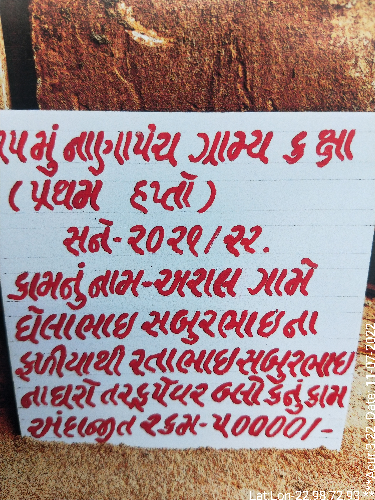 ૧૫ મું નાણાપંચ ગ્રામ્ય કક્ષા
(પ્રથમ હપ્તો)
સને-૨૦૨૧/૨૨.
કામનું નામ-અરાલ ગામે
ઘેલાભાઇ સબુરભાઇ ના
ફળીયાથી રતાભાઇ સબુરભાઇ
ના ઘરો તરફ પેવર બ્લોકનું કામ
અંદાજીત રકમ-૫૦૦૦૦/-